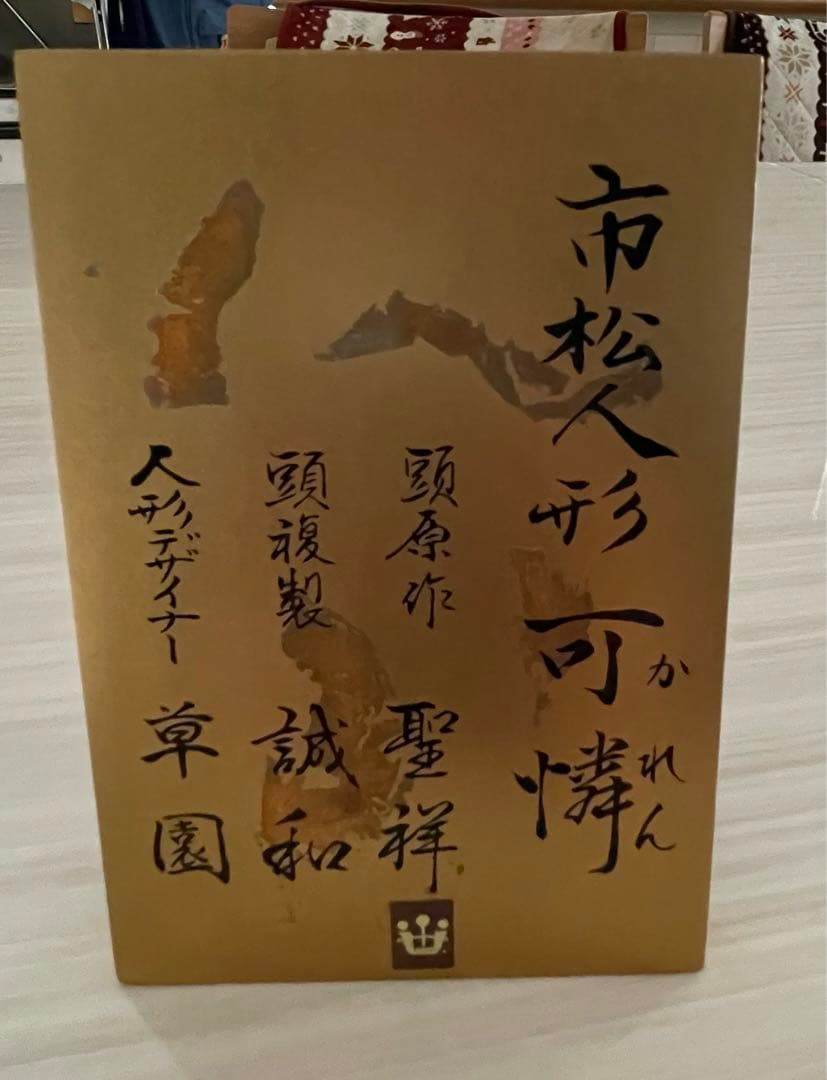 市松人形 可憐
かれん
頭原作 聖祥
頭複製 誠和
人形デザイナー 草園